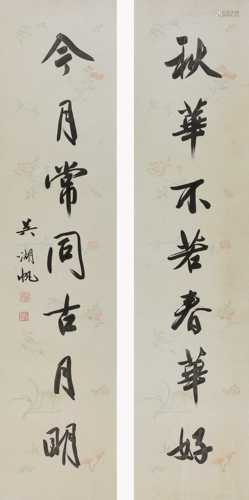 秋華不若春華好
今月常同古月明
吳湖帆